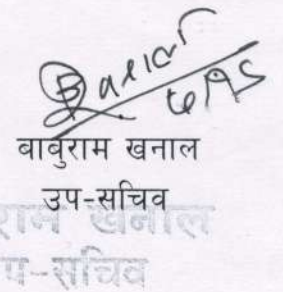 बाबुराम खनाल
उप-सचिव
राम खनाल
प-सचिव